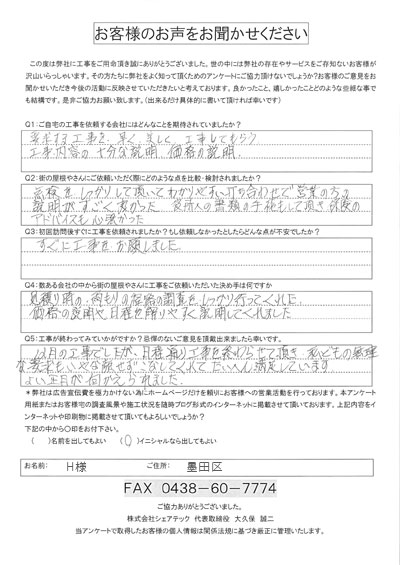 お客様のお声をお聞かせください
この度は弊社に工事をご用命頂き誠にありがとうございました。世の中には弊社の存在やサービスをご存知ないお客様が
沢山いらっしゃいます。その方たちに弊社をよく知って頂くためのアンケートにご協力頂けないでしょうか?お客様のご意見をお
聞かせいただき今後の活動に反映させていただきたいと考えております。良かったこと、嬉しかったことどのような些細な事で
も結構です。是非ご協力お願い致します。(出来るだけ具体的に書いて頂ければ幸いです)
Q1:ご自宅の工事を依頼する会社にはどんなことを期待されていましたか?
希望する工事を、早く、美しく 工事してもらう
工事内容の十分な説明、価格の説明.
Q2:街の屋根やさんにご依頼いただく際にどのような点を比較・検討されましたか?
点検をしっかりして頂いてわかりやすい打ち合わせで営業の方の
説明がすごく良かった 役所への書類の手伝もして頂き 保険の
アドバイスも心強かった
Q3:初回訪問後すぐに工事を依頼されましたか?もし依頼しなかったとしたらどんな点が不安でしたか?
すぐに工事をお願しました
Q4:数ある会社の中から街の屋根やさんに工事をご依頼いただいた決め手は何ですか
見積り用の、雨もりの 調査をしっかり行ってくれた
価格の説明や日程を解りやすく説明してくれました
Q5:工事が終わってみていかがでしたか?忌憚のないご意見を頂戴出来ましたら幸いです。
12月の工事でしたが、日程通り工事を終わらせて頂き 私どもの無理
な要求もいやな顔せずこなしてくれて たいへん満足しています
よいお正月が何かえられました.
*弊社は広告宣伝費を極力かけない為にホームページだけを頼りにお客様への営業活動を行っております。本アンケート
用紙またはお客様宅の調査風景や施工状況を随時ブログ形式のインターネットに掲載させて頂いております。上記内容をイ
ンターネットや印刷物に掲載させて頂いてもよろしいでしょうか?
下記の中から○印をお付下さい。
( )名前を出してもよい (○)イニシャルなら出してもよい
お名前: H様 ご住所: 墨田区
FAX 0438-60-7774
ご協力ありがとうございました。
株式会社シェアテック 代表取締役 大久保 誠二
当アンケートで取得したお客様の個人情報は関係法規に基づき厳正に管理いたします。